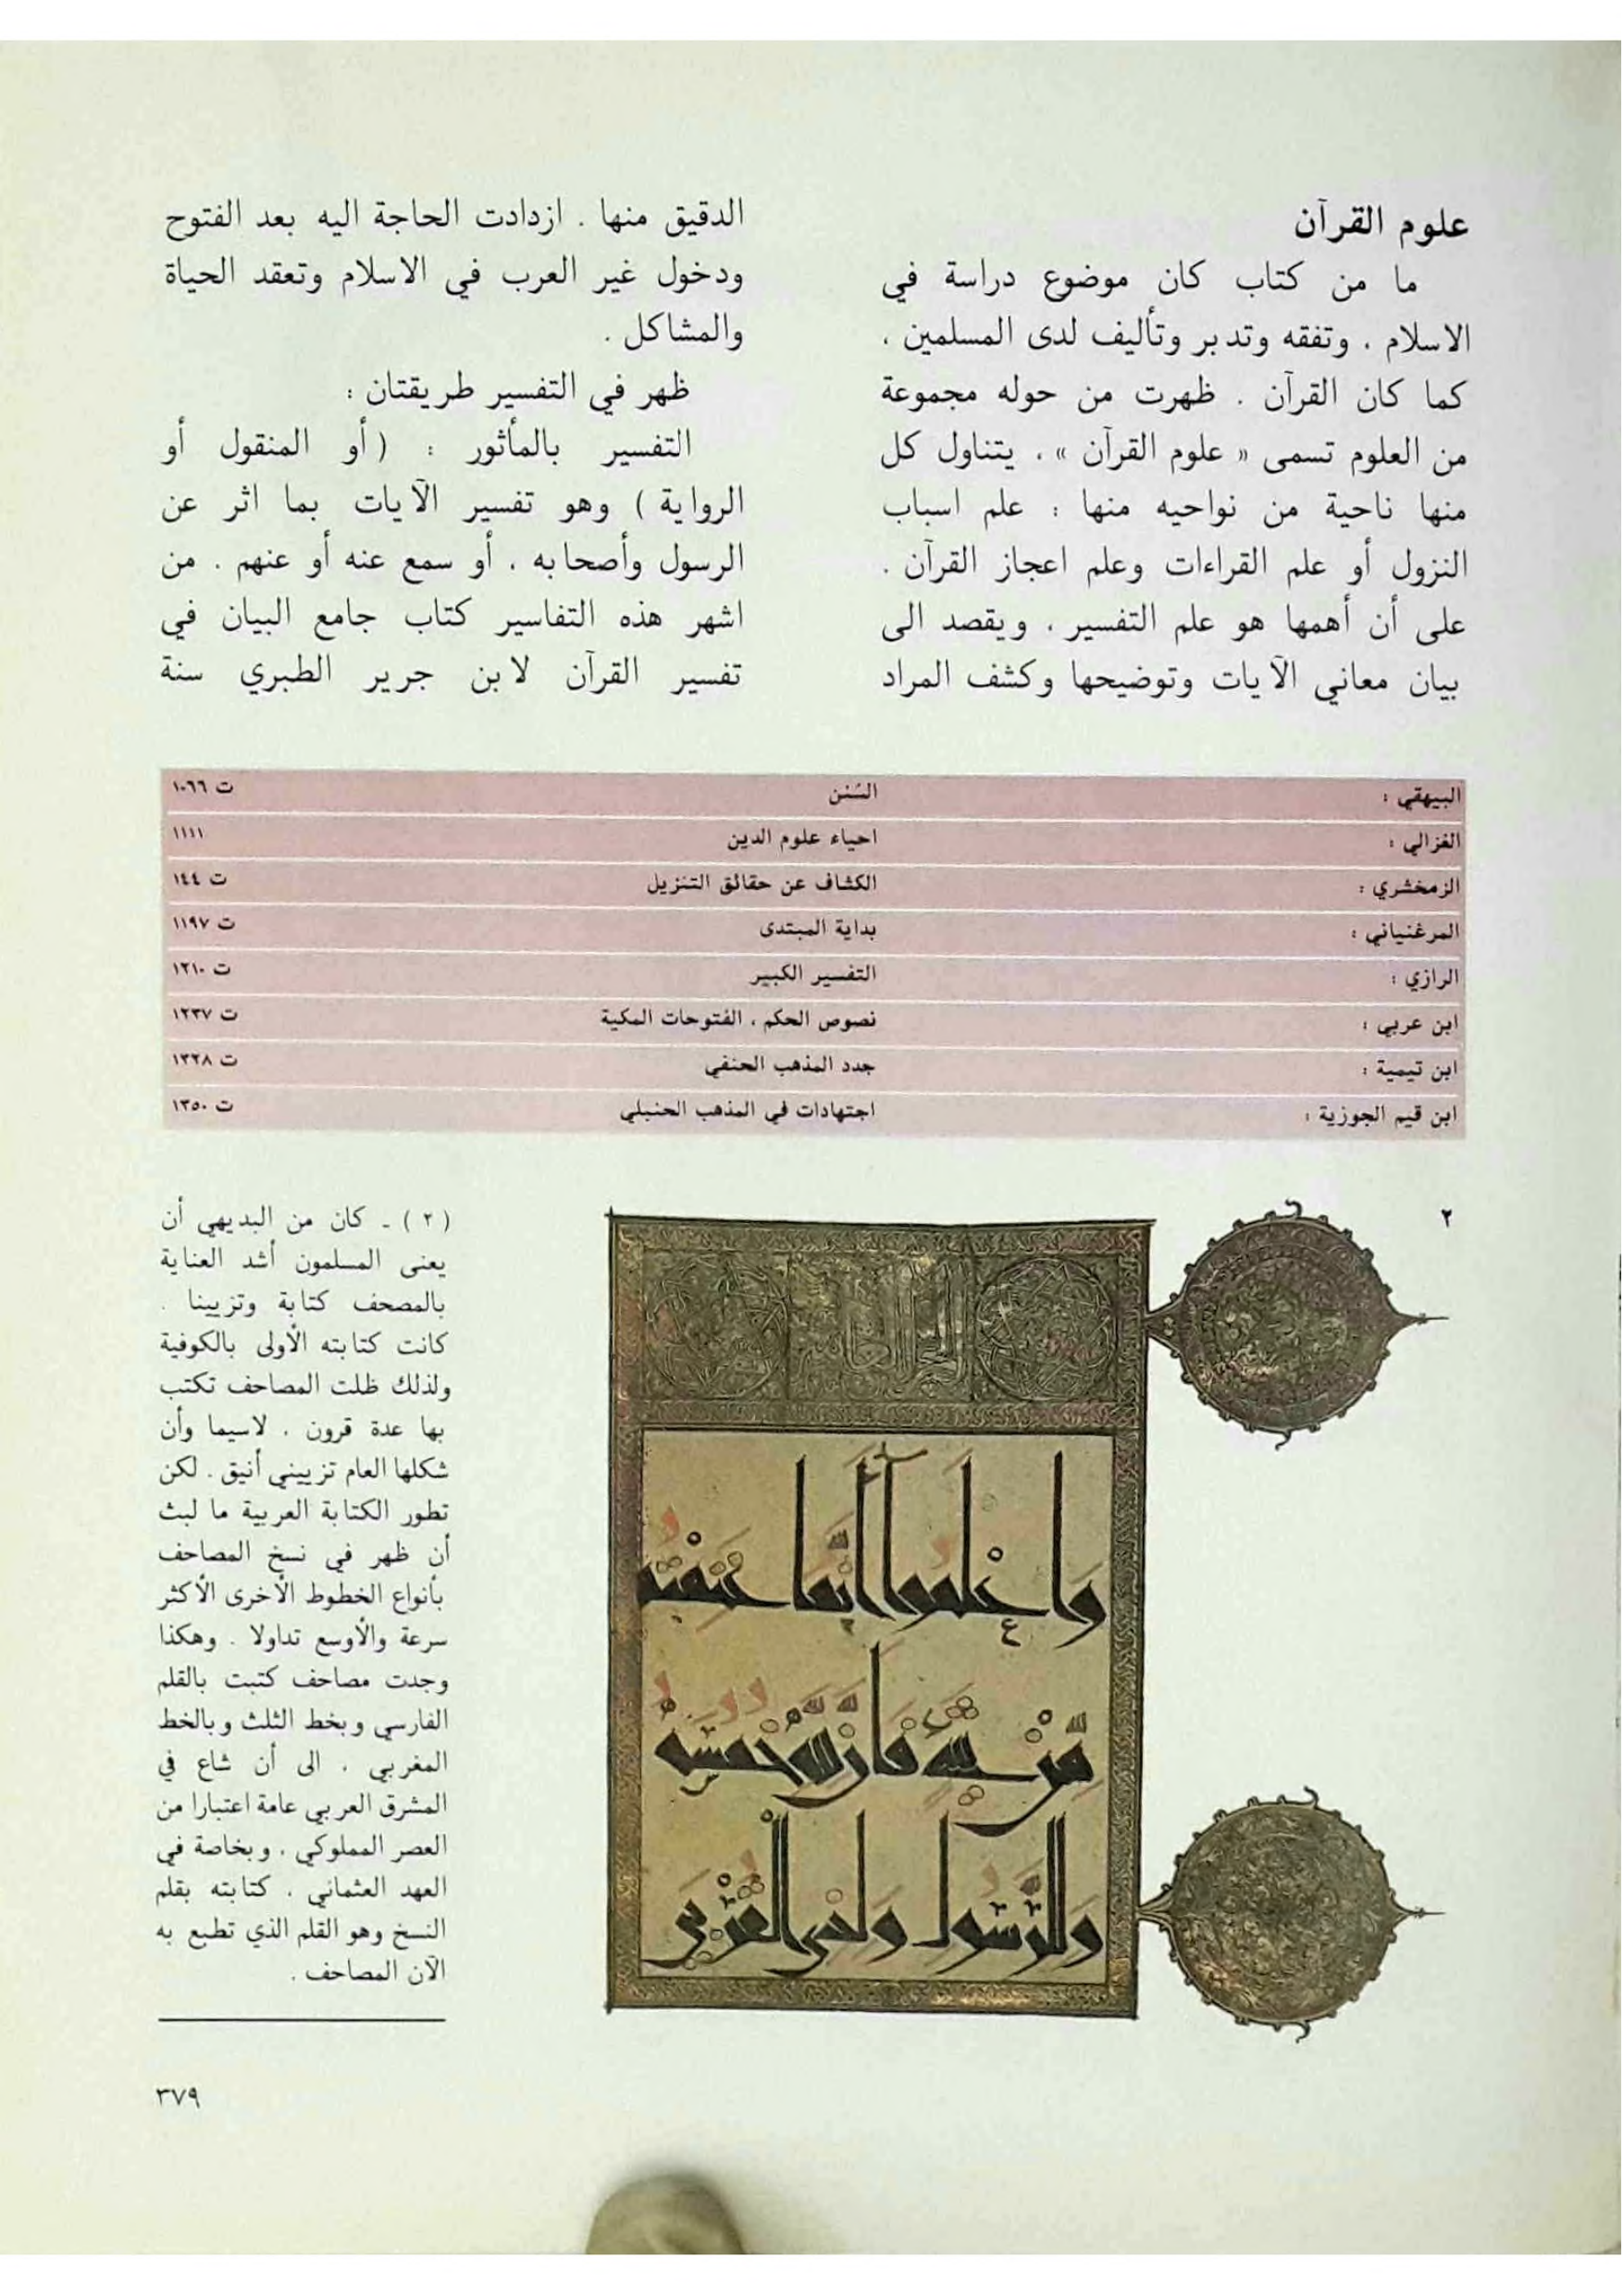 علوم القرآن
ما من كتاب كان موضوع دراسة في
الاسلام ، وتفقه وتدبر وتأليف لدى المسلمين ،
كما كان القرآن . ظهرت من حوله مجموعة
من العلوم تسمى « علوم القرآن » ، يتناول كل
منها ناحية من نواحيه منها : علم اسباب
النزول أو علم القراءات وعلم اعجاز القرآن .
على أن أهمها هو علم التفسير ، ويقصد الى
بيان معاني الآيات وتوضيحها وكشف المراد
الدقيق منها . ازدادت الحاجة اليه بعد الفتوح
ودخول غير العرب في الاسلام وتعقد الحياة
والمشاكل .
ظهر في التفسير طريقتان :
التفسير بالمأثور : ( أو المنقول أو
الرواية ) وهو تفسير الآيات بما اثر عن
الرسول وأصحابه ، أو سمع عنه أو عنهم . من
اشهر هذه التفاسير كتاب جامع البيان في
تفسير القرآن لابن جرير الطبري سنة
البيهقي : السُنن ت ١٠٦٦
الغزالي : احياء علوم الدين ١١١١
الزمخشري : الكشاف عن حقائق التنزيل ت ١٤٤
المرغنياني : بداية المبتدى ت ١١٩٧
الرازي : التفسير الكبير ت ١٢١٠
ابن عربي : نصوص الحكم ، الفتوحات المكية ت ١٢٣٧
ابن تيمية : جدد المذهب الحنفي ت ١٣٢٨
ابن قيم الجوزية : اجتهادات في المذهب الحنبلي ت ١٣٥٠
٢
واعلموا أنما غنمتم
من شيء فأن لله خمسه
وللرسول ولذي القربى
( ٢ ) ـ كان من البديهي أن
يعنى المسلمون أشد العناية
بالمصحف كتابة وتزيينا .
كانت كتابته الأولى بالكوفية
ولذلك ظلت المصاحف تكتب
بها عدة قرون ، لاسيما وأن
شكلها العام تزييني أنيق . لكن
تطور الكتابة العربية ما لبث
أن ظهر في نسخ المصاحف
بأنواع الخطوط الأخرى الأكثر
سرعة والأوسع تداولا . وهكذا
وجدت مصاحف كتبت بالقلم
الفارسي وبخط الثلث وبالخط
المغربي ، الى أن شاع في
المشرق العربي عامة اعتبارا من
العصر المملوكي ، وبخاصة في
العهد العثماني ، كتابته بقلم
النسخ وهو القلم الذي تطبع به
الآن المصاحف .
٣٧٩